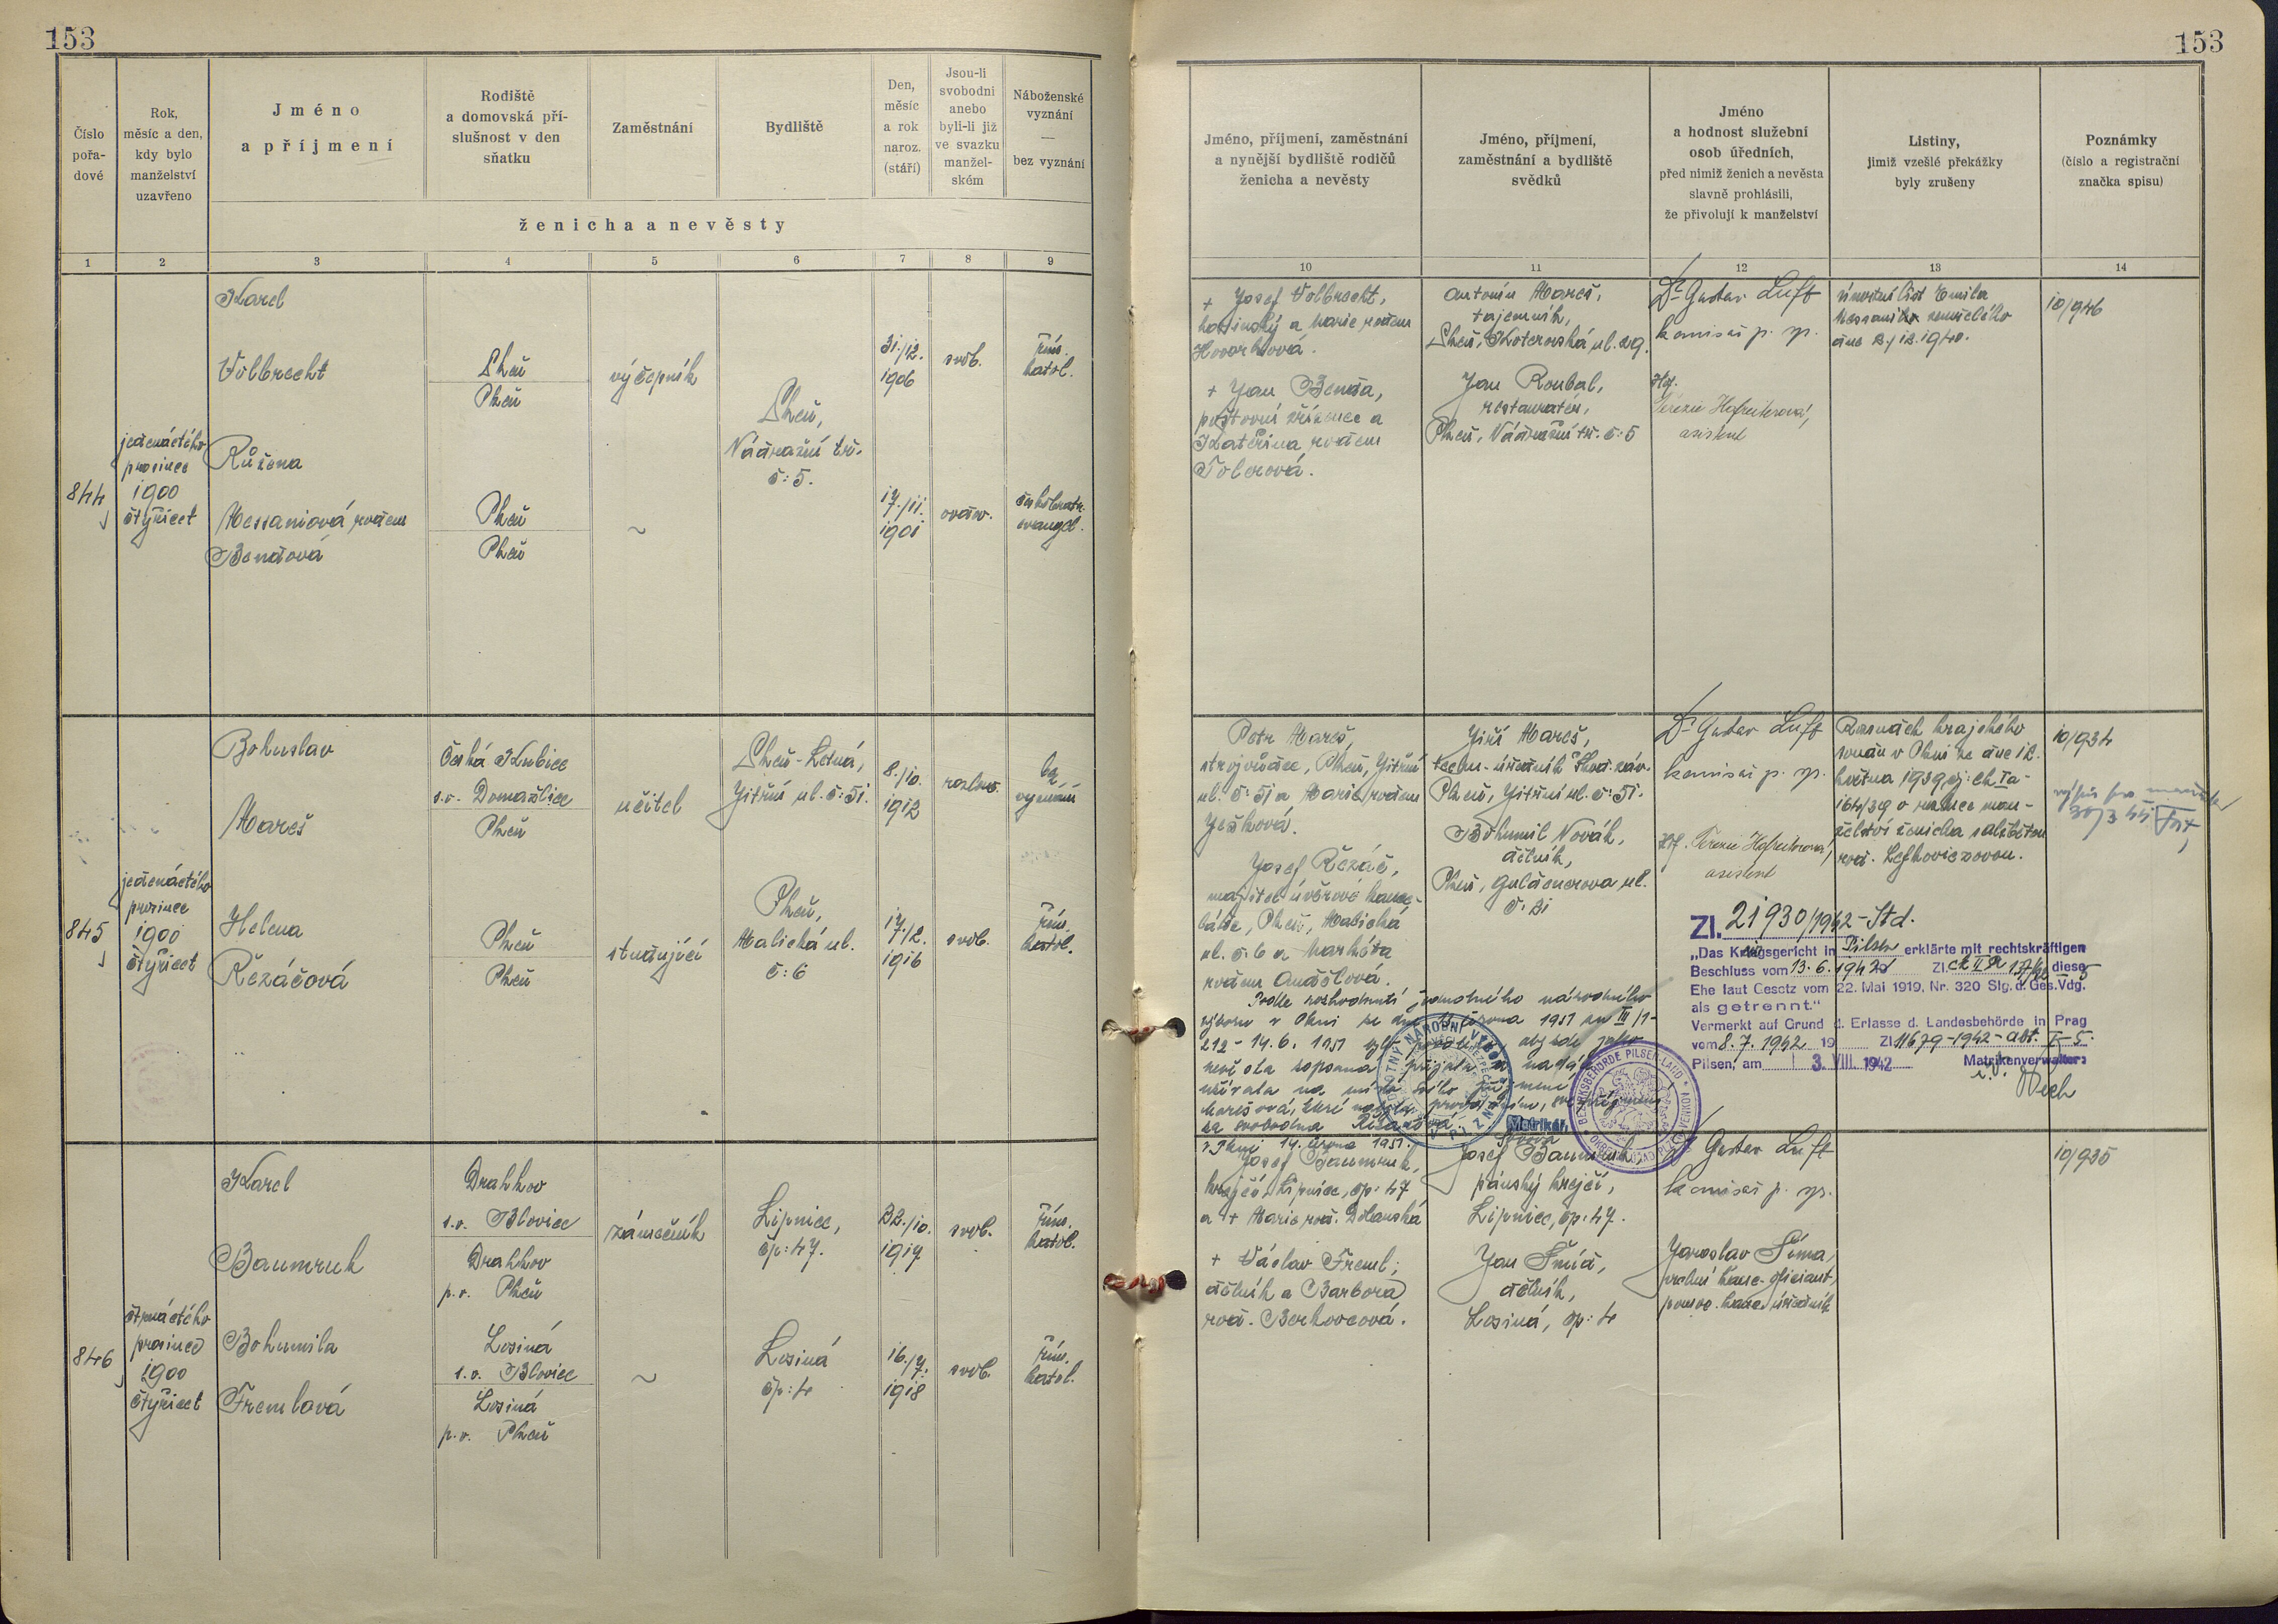 153
153
Číslo pořa-dové
Rok, měsíc a den, kdy bylo manželství uzavřeno
Jméno a příjmení
Rodiště a domovská pří-slušnost v den sňatku
Zaměstnání
Bydliště
Den, měsíc a rok naroz. (stáří)
Jsou-li svobodni anebo byli-li již ve svazku manžel-ském
Náboženské vyznání — bez vyznání
ženicha a nevěsty
1 2 3 4 5 6 7 8 9
Jméno, příjmení, zaměstnání a nynější bydliště rodičů ženicha a nevěsty
Jméno, příjmení, zaměstnání a bydliště svědků
Jméno a hodnost služební osob úředních, před nimiž ženich a nevěsta slavně prohlásili, že přivolují k manželství
Listiny, jimiž vzešlé překážky byly zrušeny
Poznámky (číslo a registrační značka spisu)
10 11 12 13 14
844
jedenáctého
prosince
1900
čtyřicet
Karel
Volbrecht
Plzeň
Plzeň
výčepník
Plzeň,
Nádražní tř.
č: 5.
31./12.
1906
svob.
řím.
katol.
Růžena
Messaniová rodem
Bendová
Plzeň
Plzeň
~
17./11.
1901
ovdov.
českobratr.
evangel.
+ Josef Volbrecht,
hostinský a Marie rodem
+ Jan Benda,
poštovní zřízenec a
Kateřina rodem
Toberová.
Antonín Mareš,
tajemník,
Plzeň, Koterovská ul. 29.
Jan Roubal,
restauratér,
Plzeň, Nádražní tř. č: 5
Dr Gustav Luft
komisař p. sp.
Terezie Hofreiterová,
asistent
úmrtní list Emila
Messaniho zemřelého
dne 2./12. 1940.
10/946
845
jedenáctého
prosince
1900
čtyřicet
Bohuslav
Mareš
Česká Kubice
s.o. Domažlice
Plzeň
učitel
Plzeň-Letná,
Jitřní ul. č: 51.
8./10.
1912
rozlouč.
bez
vyznání
Helena
Řezáčová
Plzeň
Plzeň
studující
Plzeň,
Malická ul.
č: 6
17./2.
1916
svob.
řím.
katol.
Petr Mareš,
strojvůdce, Plzeň, Jitřní
ul. č: 51 a Marie rodem
Ješková.
Josef Řezáč,
majitel úvěrové kanc-
láře, Plzeň, Malická
ul. č. 6 a Markéta
rodem Andělová.
Podle rozhodnutí jednotného národního
výboru v Plzni ze dne 13. června 1951 zn III/1-
212 - 14.6. 1951
v Plzni 14. června 1951.
Jiří Mareš,
techn. úředník Škod. záv.
Plzeň, Jitřní ul. č: 51.
Bohumil Novák,
dělník,
Plzeň, Guldenerova ul.
č: 21
Matrikář:
Dr Gustav Luft
komisař p. sp.
Terezie Hofreiterová,
asistent
Rozsudek krajského
soudu v Plzni ze dne 12.
května 1939 čj: Ck Ia
164/39 o rozluce man-
želství ženicha s Alžbětou
rod. Lefkoviczovou.
10/934
výpis pro
30/3 45
Zl. 21930/1942-Std.
„Das Kreisgericht in Pilsen erklärte mit rechtskräftigen
Beschluss vom 13.6.1942 Zl. Ck II a 137/42 diese
Ehe laut Gesetz vom 22. Mai 1919, Nr. 320 Slg. d. Ges. Vdg.
als getrennt."
Vermerkt auf Grund d. Erlasse d. Landesbehörde in Prag
vom 8.7.1942 19 Zl. 11679-1942-Abt. I-5.
Pilsen, am 3. VIII. 1942 Matrikenverwalter:
i.V.
846
čtrnáctého
prosince
1900
čtyřicet
Karel
Baumruk
Drahkov
s.o. Blovice
Drahkov
p.o. Plzeň
zámečník
Lipnice,
čp: 47.
22./10.
1917
svob.
řím.
katol.
Bohumila
Fremlová
Losiná
s.o. Blovice
Losiná
p.o. Plzeň
~
Losiná
čp: 4
16./7.
1918
svob.
řím.
katol.
Josef Baumruk,
krejčí, Lipnice, čp: 47
a + Marie rod. Dolanská
+ Václav Freml,
dělník a Barbora
rod. Berkovcová.
Josef Baumruk,
pánský krejčí,
Lipnice, čp: 47.
Jan Šmíd,
dělník,
Losiná, čp: 4
Dr Gustav Luft
komisař p. sp.
Jaroslav Šíma,
kanc. oficiant,
pomoc. kanc. úředník
10/935